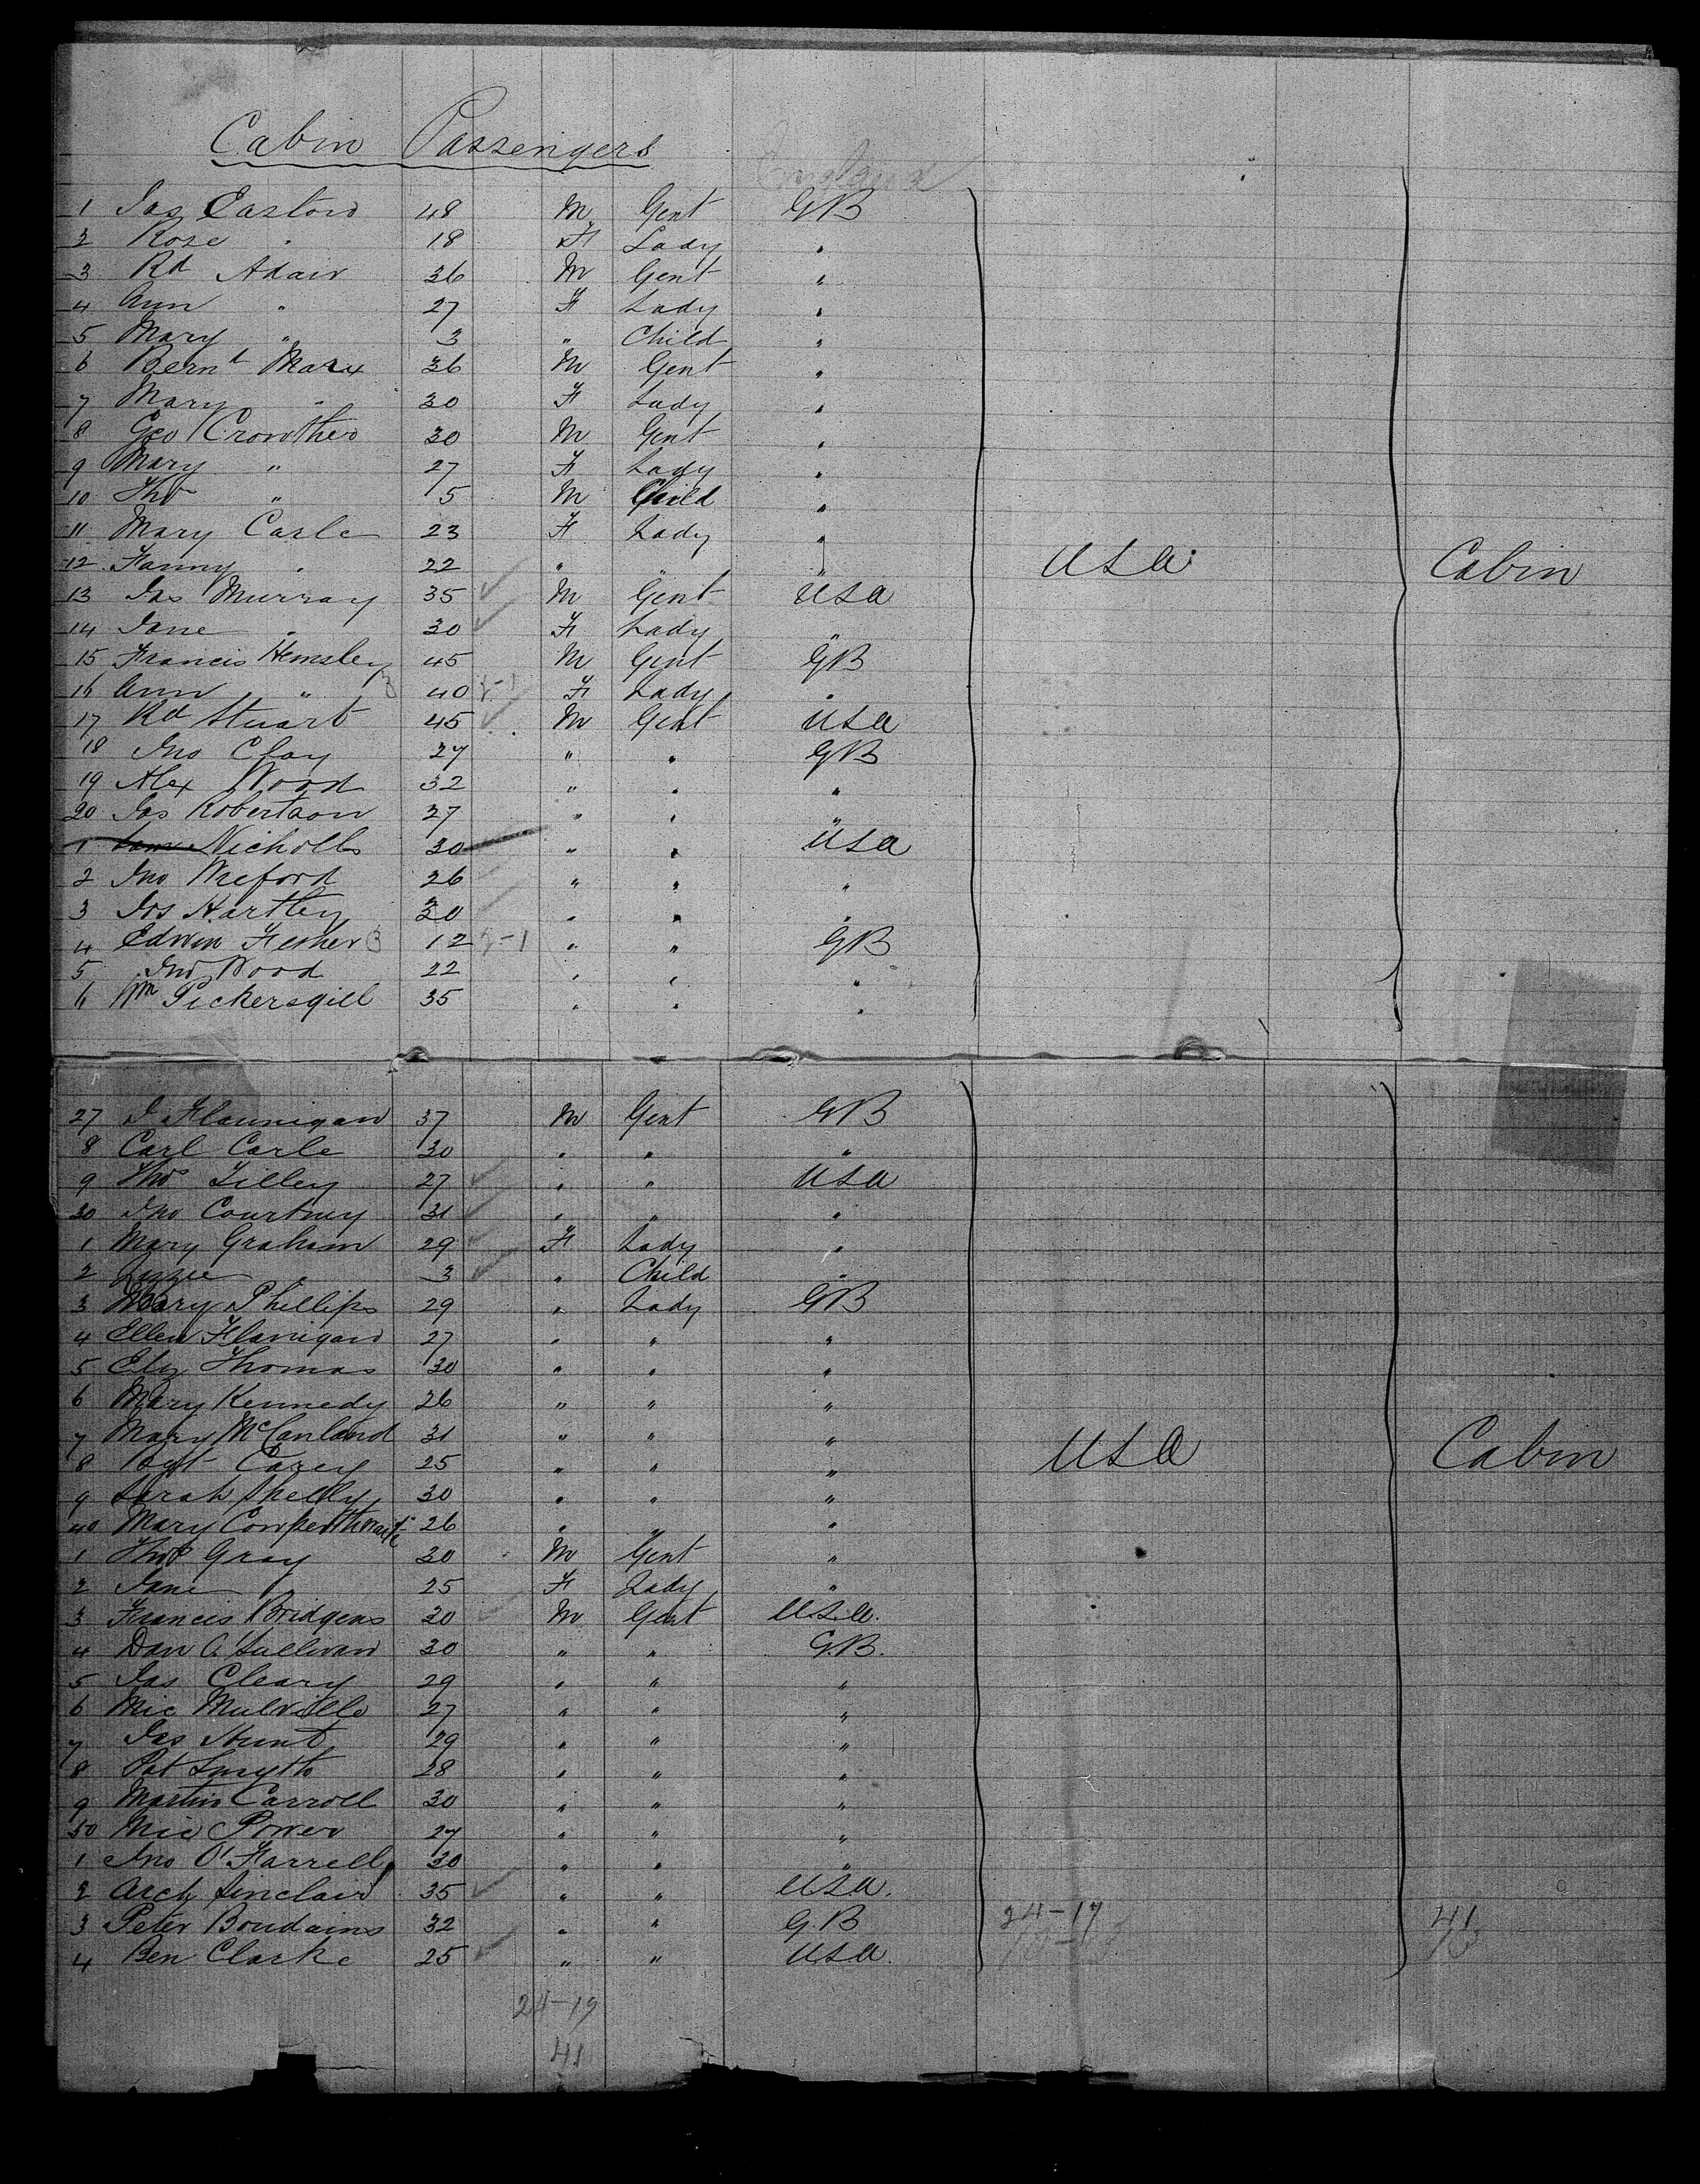 Cabin Passengers
England
1 Jas Easton 48 M Gent GB
2 Rose " 18 F Lady "
3 Rd Adair 36 M Gent "
4 Ann " 27 F Lady "
5 Mary " 3 " Child "
6 Bernd Marx 36 M Gent "
7 Mary " 30 F Lady "
8 Geo Crowther 30 M Gent "
9 Mary " 27 F Lady "
10 Tho " 5 M Child "
11 Mary Carle 23 F Lady "
12 Fanny " 22 " " " USA Cabin
13 Jas Murray 35 M Gent USA
14 Jane " 30 F Lady "
15 Francis Hemsley 45 M Gent GB
16 Ann " 40 F Lady "
17 Rd Stuart 45 M Gent USA
18 Jno Clay 27 " " GB
19 Alex Wood 32 " " "
20 Jas Robertson 27 " " "
1 Nicholls 30 " " USA
2 Jno Wreford 26 " " "
3 Jos Hartley 30 " " "
4 Edwin 12 " " GB
5 Jno Wood 22 " " "
6 Wm Pickersgill 35 " " "
27 J Flannigan 37 M Gent GB
8 Carl Carle 30 " " "
9 Thos Tilley 27 " " USA
30 Jno Courtney 31 " " "
1 Mary Graham 29 F Lady "
2 Lizzie " 3 " Child "
3 Mary Phillips 29 " Lady GB
4 Ellen Flanigan 27 " " "
5 Eliz Thomas 30 " " "
6 Mary Kennedy 26 " " "
7 Mary McCanland 31 " " " USA Cabin
8 Bgt Carey 25 " " "
9 Sarah Shelly 30 " " "
40 Mary Cowperthwaite 26 " " "
1 Thos Gray 30 M Gent "
2 Jane " 25 F Lady "
3 Francis Bridgens 30 M Gent U.S.A.
4 Dan O'Sullivan 30 " " G.B.
5 Jas Cleary 29 " " "
6 Mic Mulville 27 " " "
7 Jas Hunt 29 " " "
8 Pat Smyth 28 " " "
9 Martin Carroll 30 " " "
50 Mic Power 27 " " "
1 Jno O'Farrell 30 " " "
2 Arch Sinclair 35 " " USA.
3 Peter Boudains 32 " " G.B 24-17 41
4 Ben Clarke 25 " " USA.
24-19
41